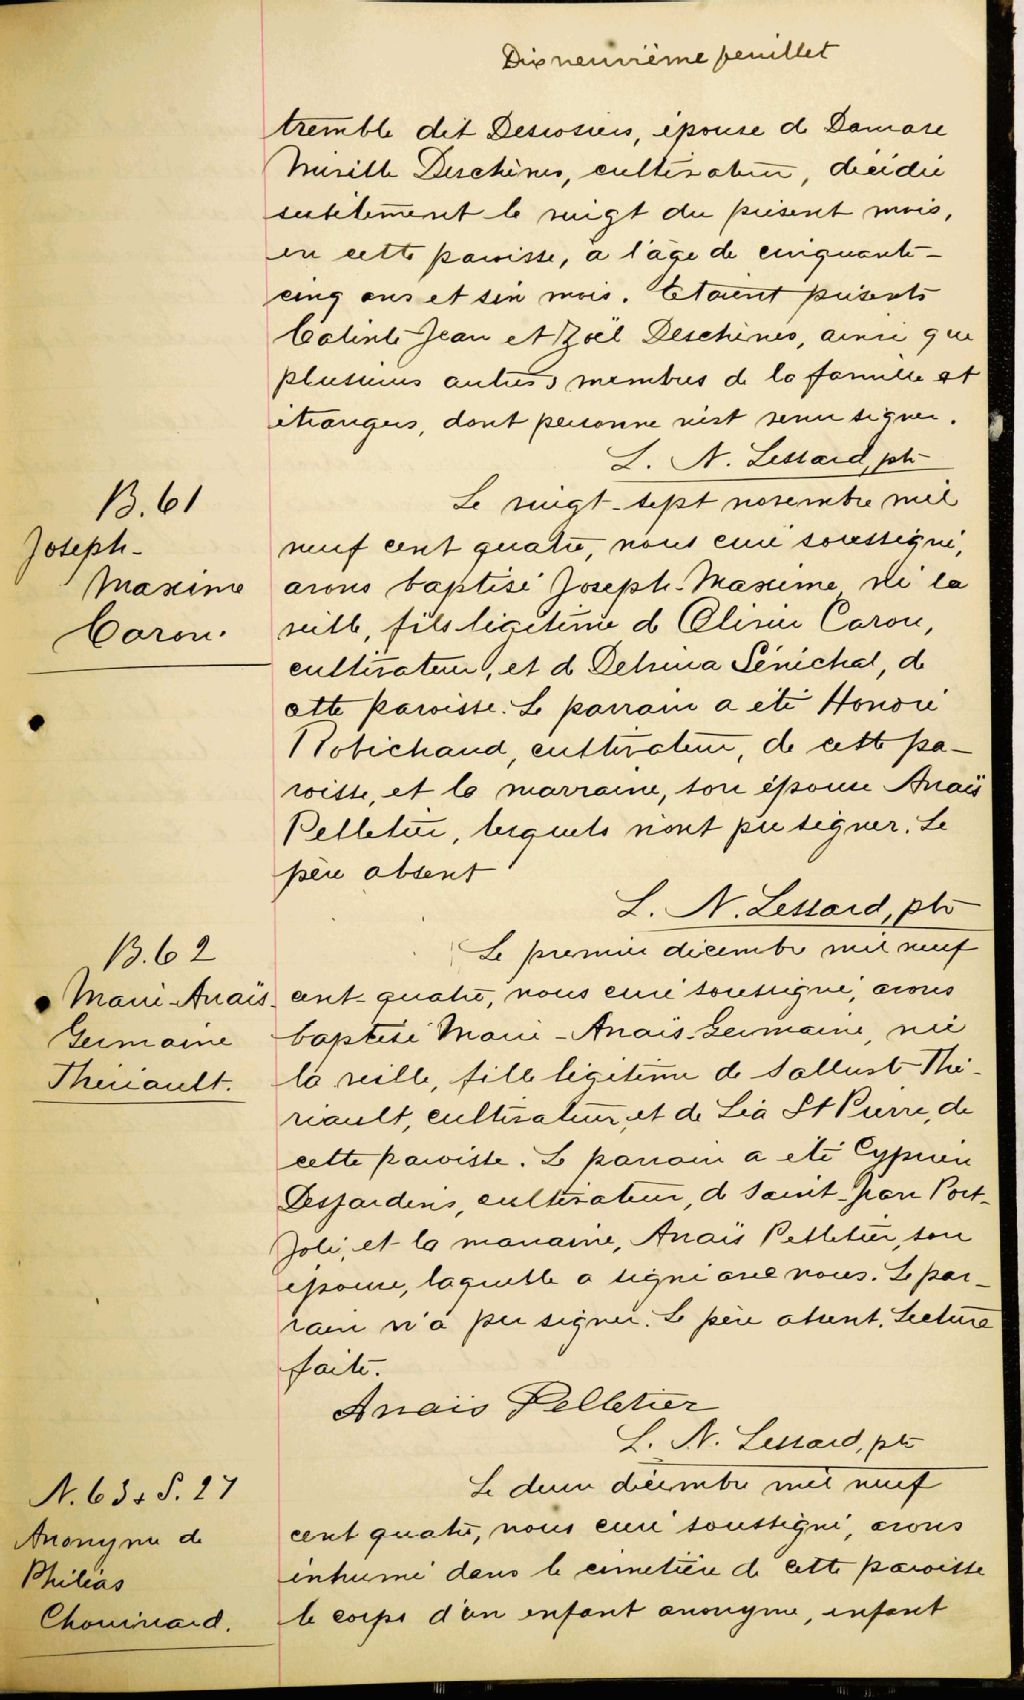 Dixneuvième feuillet
tremble dit Desrosiers, épouse de Damase
Miville Deschênes, cultivateur, décédée
subitement le vingt du présent mois,
en cette paroisse, à l'âge de cinquante-
cinq ans et six mois. Etaient présents
Calixte Jean et Zoël Deschênes, ainsi que
plusieurs autres membres de la famille et
étrangers, dont personne n'est venu signer.
L. N. Lessard, ptr
B. 61
Joseph-
Maxime
Caron.
Le vingt-sept novembre mil
neuf cent quatre, nous curé soussigné,
avons baptisé Joseph-Maxime, né la
veille, fils légitime de Olivier Caron,
cultivateur, et de Delvina Sénéchal, de
cette paroisse. Le parrain a été Honoré
Robichaud, cultivateur, de cette pa-
roisse, et la marraine, son épouse Anaïs
Pelletier, lesquels n'ont pu signer. Le
père absent
L. N. Lessard, ptr
B. 62
Marie-Anaïs-
Germaine
Thériault.
Le premier décembre mil neuf
cent-quatre, nous curé soussigné, avons
baptisé Marie-Anaïs-Germaine, née
la veille, fille légitime de Salluste Thé-
riault, cultivateur, et de Léa St Pierre, de
cette paroisse. Le parrain a été Cyprien
Desjardins, cultivateur, de Saint-Jean Port-
Joli, et la marraine, Anaïs Pelletier, son
épouse, laquelle a signé avec nous. Le par-
rain n'a pu signer. Le père absent. Lecture
faite.
Anaïs Pelletier
L. N. Lessard, ptr
N. 63 & S. 27
Anonyme de
Philéas
Chouinard.
Le deux décembre mil neuf
cent quatre, nous curé soussigné, avons
inhumé dans le cimetière de cette paroisse
le corps d'un enfant anonyme, enfant